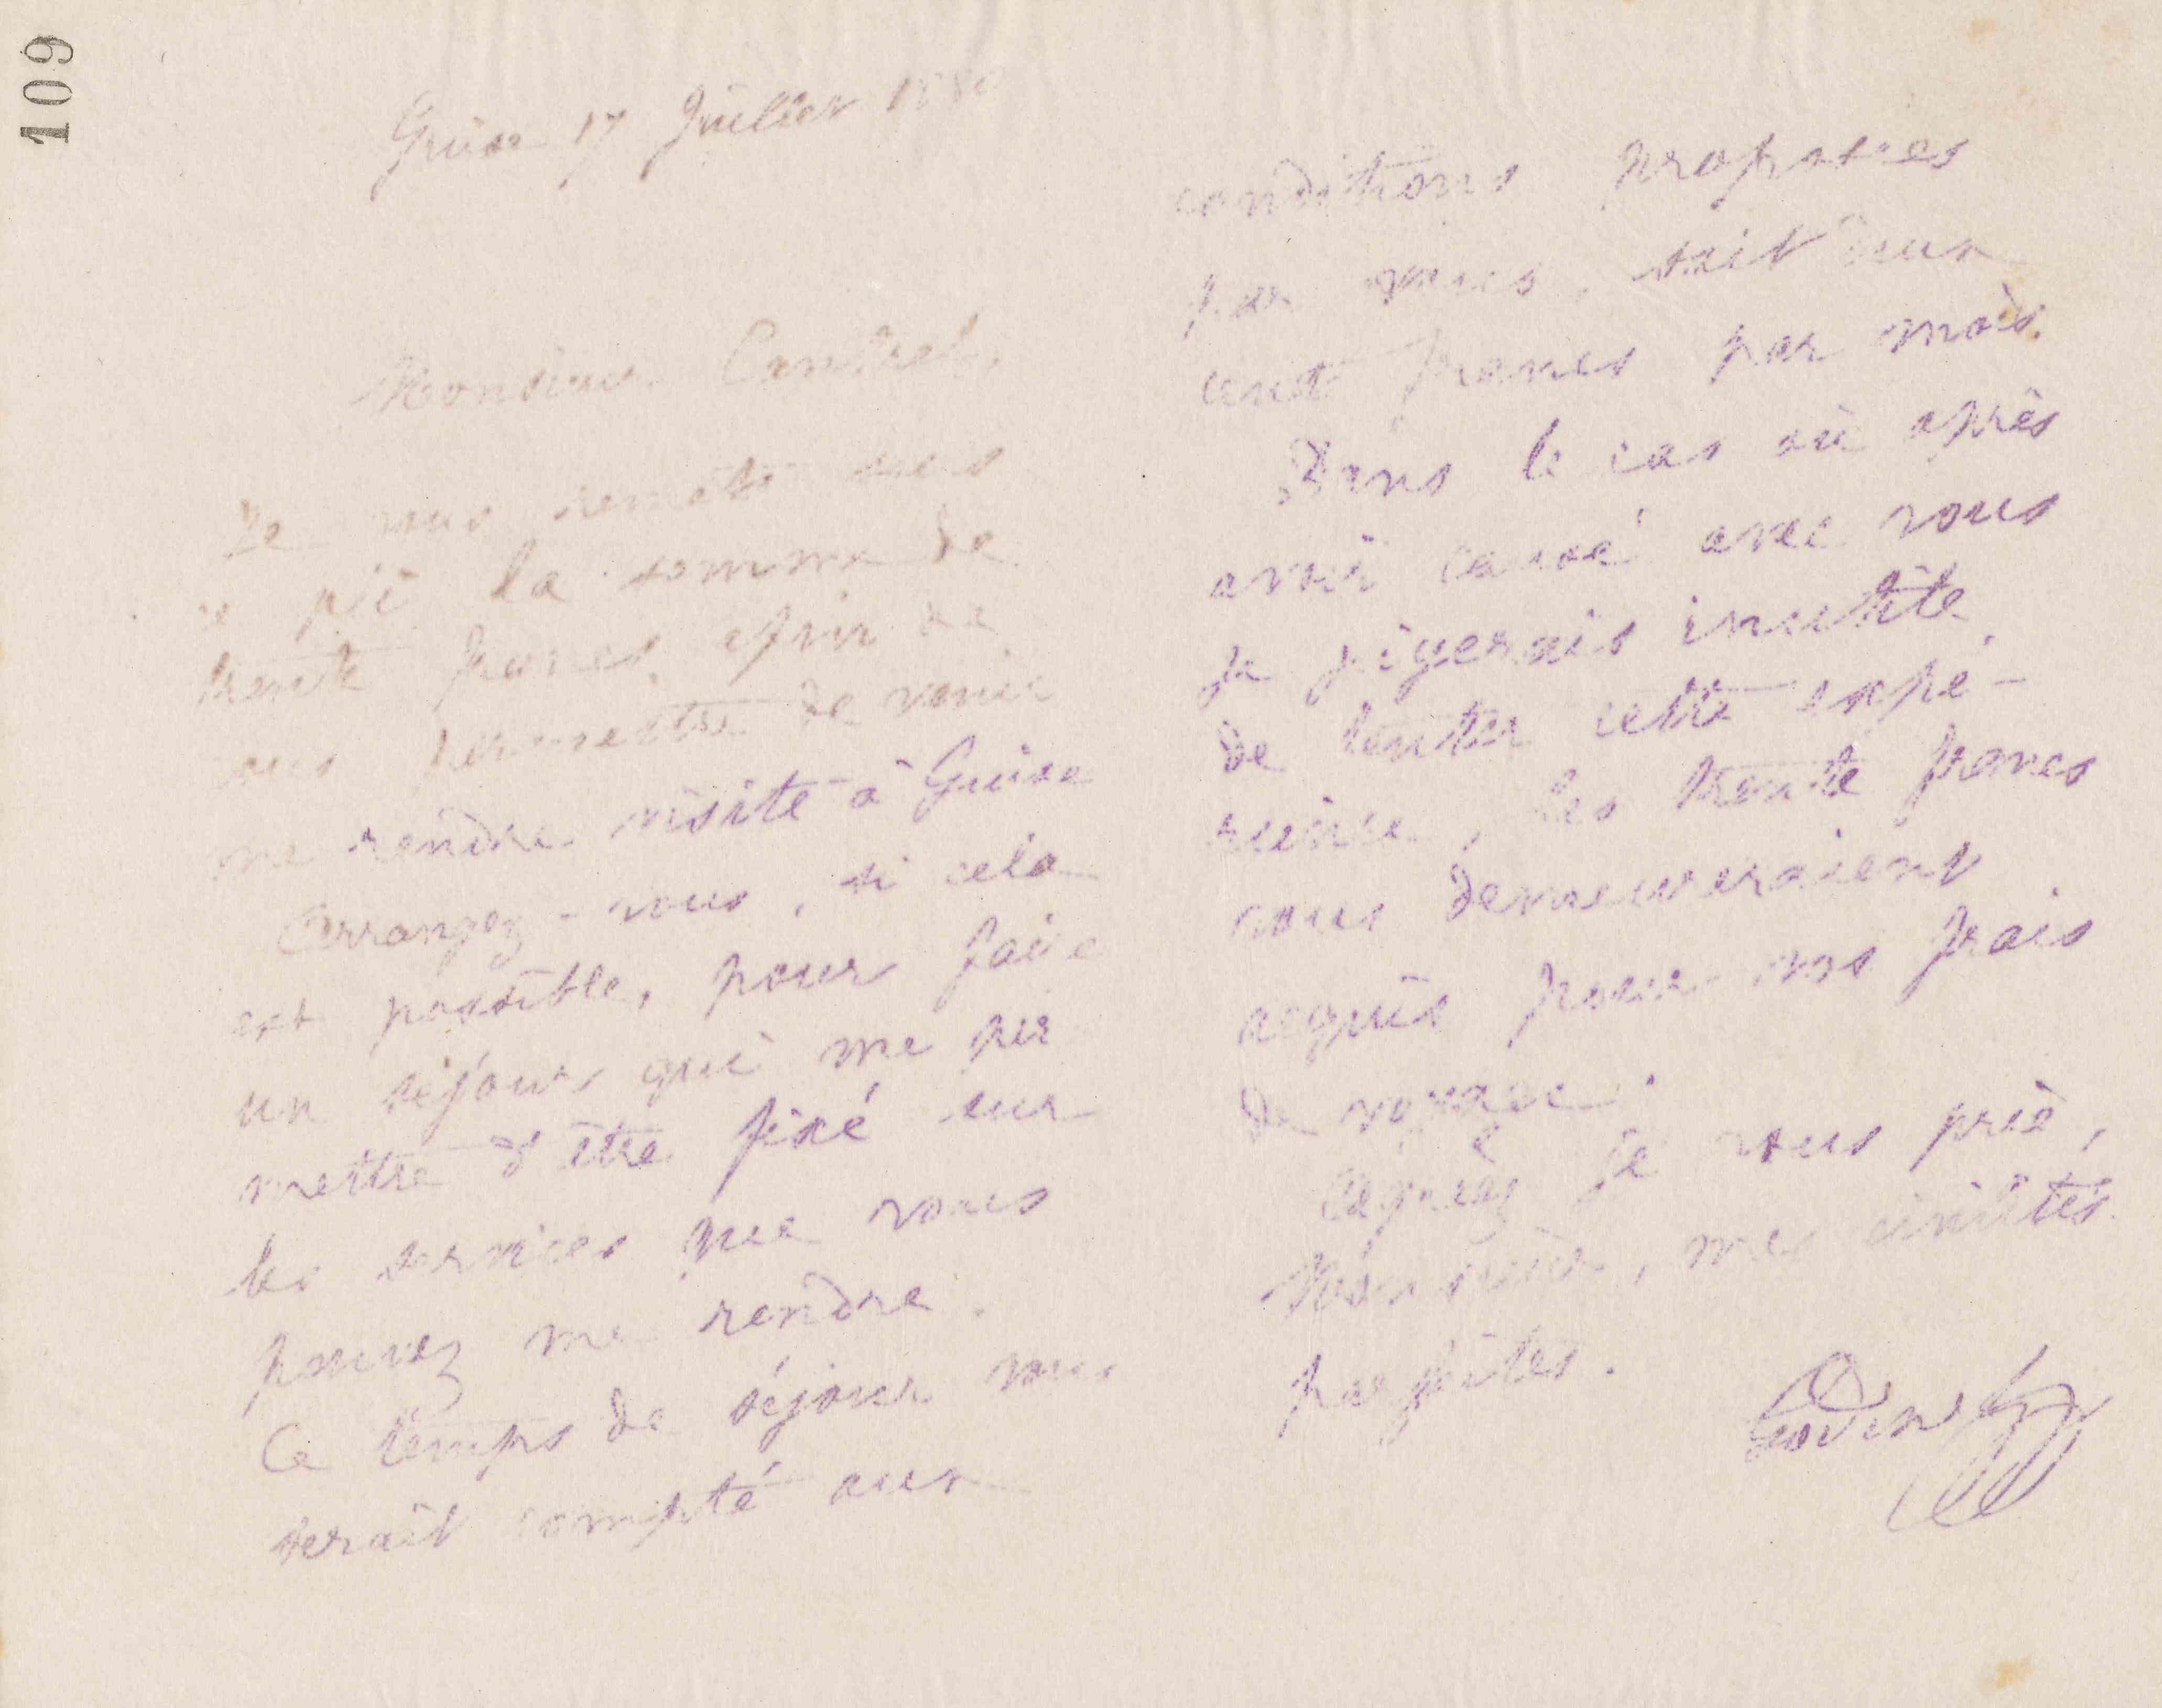 109
Guise 17 Juillet 188
Monsieur Cantrel,
Je vous remets sous
ce pli la somme de
trente francs, afin de
vous permettre de venir
me rendre visite à Guise
Arrangez-vous, si cela
est possible, pour faire
un séjour qui me per
mettre d'être fixé sur
les services que vous
pouvez me rendre.
Ce temps de séjour vous
serait compté aux
conditions proposées
par vous, soit deux
cents francs par mois.
Dans le cas où après
avoir causé avec vous
je jugerais inutile
de tenter cette expé-
rience, les trente francs
vous demeureraient
acquis pour vos frais
de voyage.
Agréez je vous prie,
Monsieur, mes civilités
parfaites.
Godin